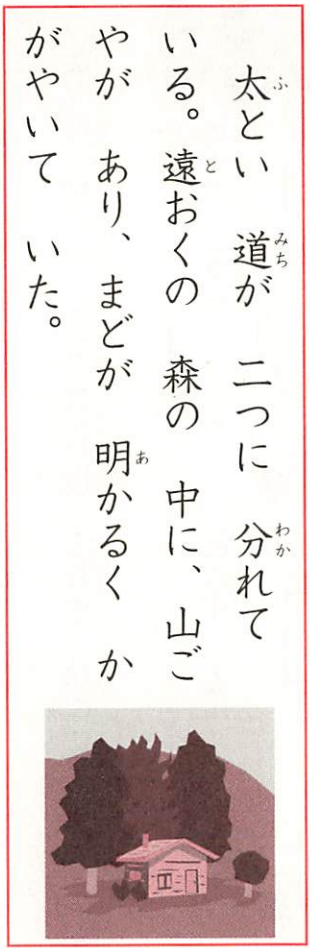 太とい　道が　二つに　分れて
いる。遠おくの　森の　中に、山ご
やが　あり、まどが　明かるく　か
がやいて　いた。